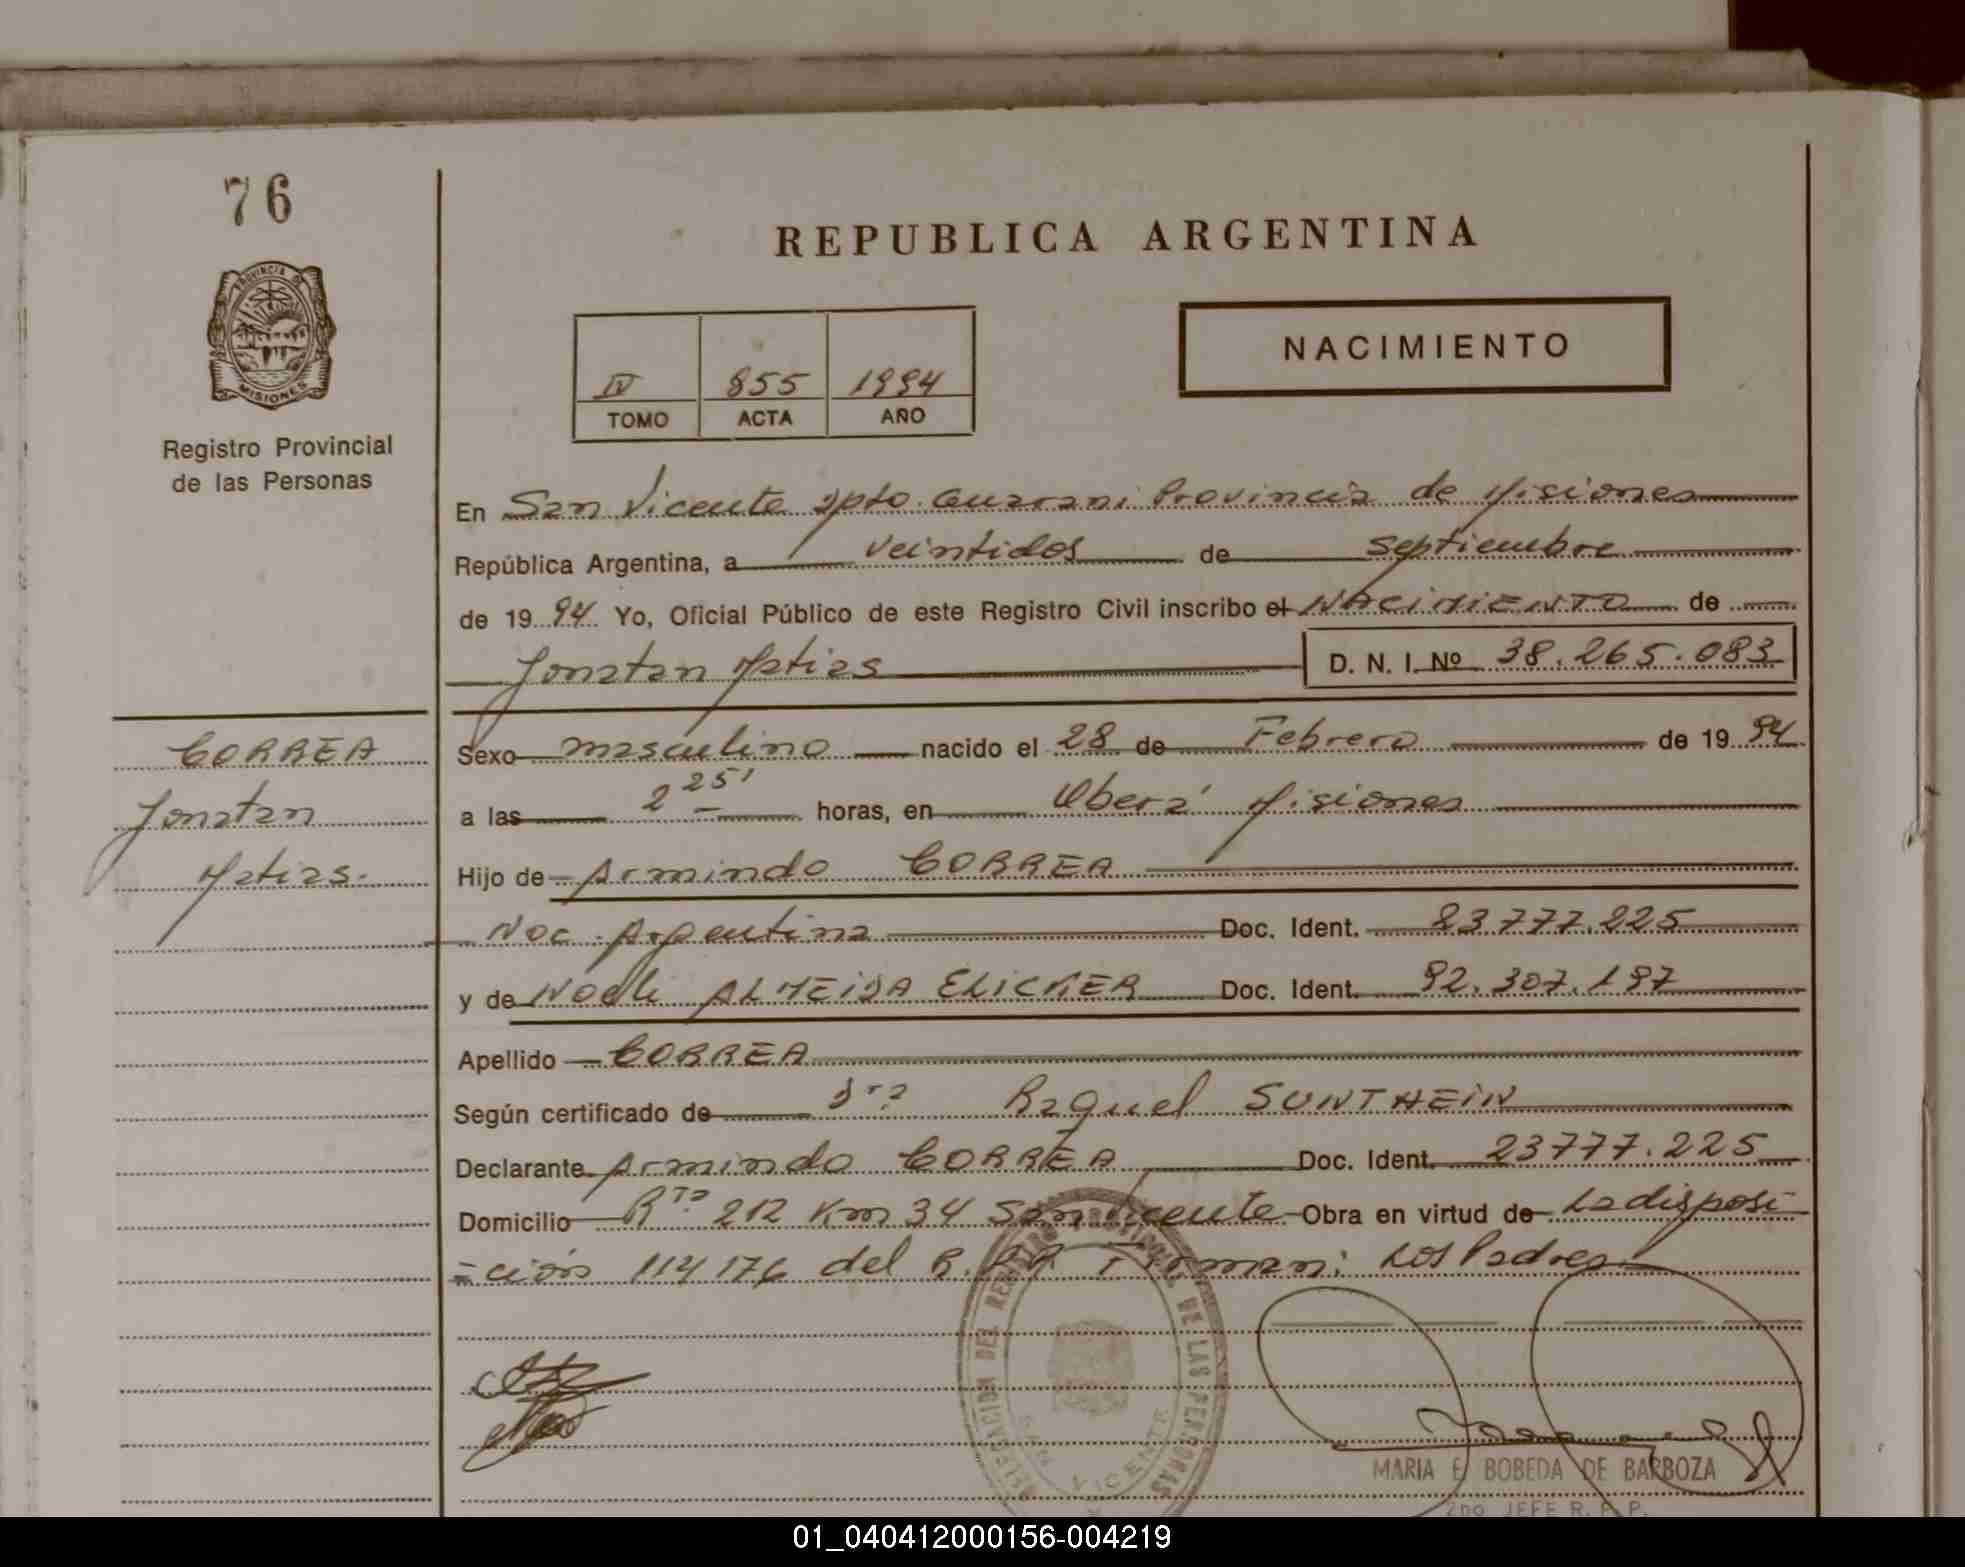 76
REPUBLICA ARGENTINA
PROVINCIA DE
MISIONES
Registro Provincial
de las Personas
IV 855 1994
TOMO ACTA AÑO
NACIMIENTO
En San Vicente Dpto. Guarani Provincia de Misiones
República Argentina, a veintidos de septiembre
de 19 94 Yo, Oficial Público de este Registro Civil inscribo el NACIMIENTO de
Jonatan Matias D. N. I. Nº 38.265.083
CORREA
Jonatan
Matias.
Sexo masculino nacido el 28 de Febrero de 19 94
a las 2 25' horas, en Oberá Misiones
Hijo de Armindo CORREA
Nac. Argentina Doc. Ident. 23777.225
y de Noeli ALMEIDA ELICKER Doc. Ident. 92.307.197
Apellido CORREA
Según certificado de Dra Raquel SUNTHEIN
Declarante Armindo CORREA Doc. Ident. 23777.225
Domicilio Rta 212 Km 34 San Vicente Obra en virtud de La disposi
=ción 114176 del R. Firman: Los Padres
DELEGACION DEL REGISTRO PROVINCIAL DE LAS PERSONAS
SAN VICENTE
MARIA E. BOBEDA DE BARBOZA
2DO JEFE R. P. P.
01_040412000156-004219